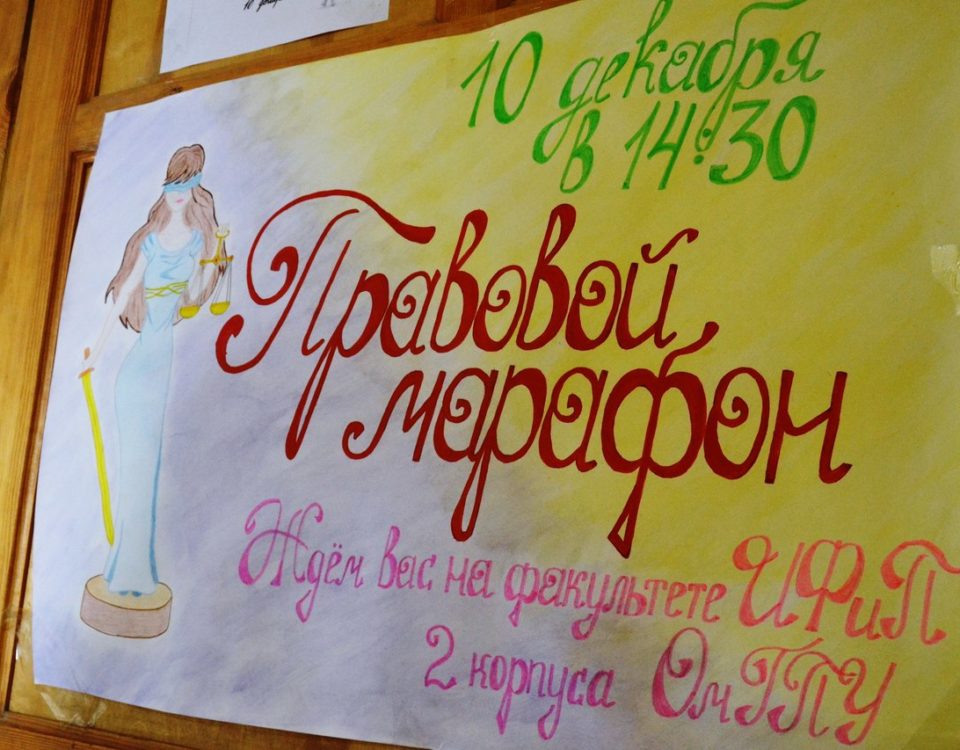 10 декабря
в 14:30
Правовой
марафон
Ждём вас на факультете ИФиП
2 корпуса ОмГПУ